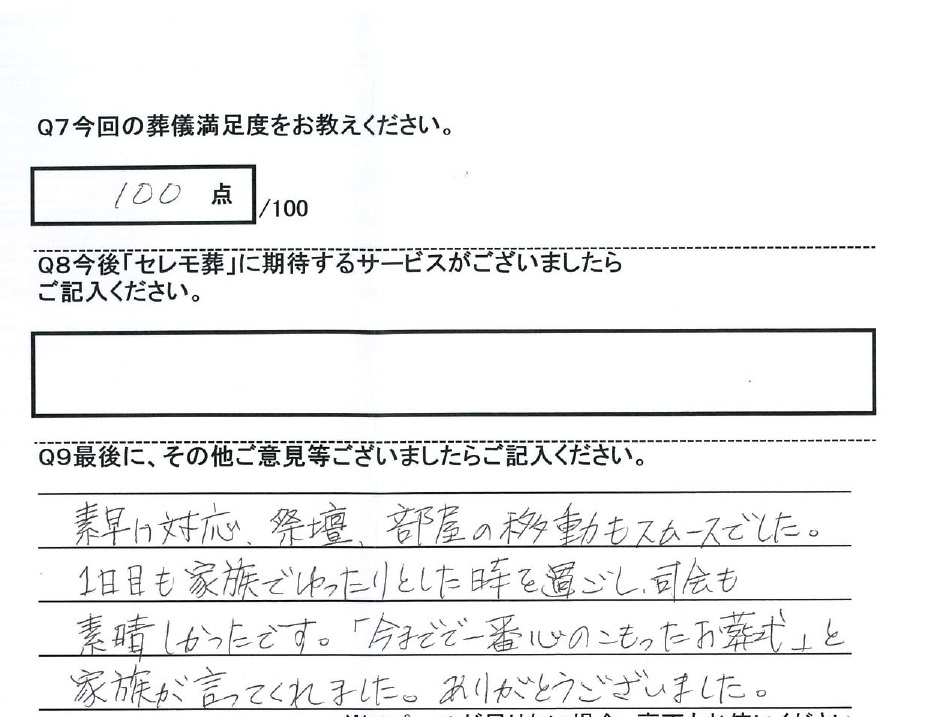 Q7今回の葬儀満足度をお教えください。
100 点 /100
Q8今後「セレモ葬」に期待するサービスがございましたら
ご記入ください。
Q9最後に、その他ご意見等ございましたらご記入ください。
素早い対応、祭壇、部屋の移動もスムースでした。
1日目も家族でゆったりとした時を過ごし、司会も
素晴しかったです。「今までで一番心のこもったお葬式」と
家族が言ってくれました。ありがとうございました。